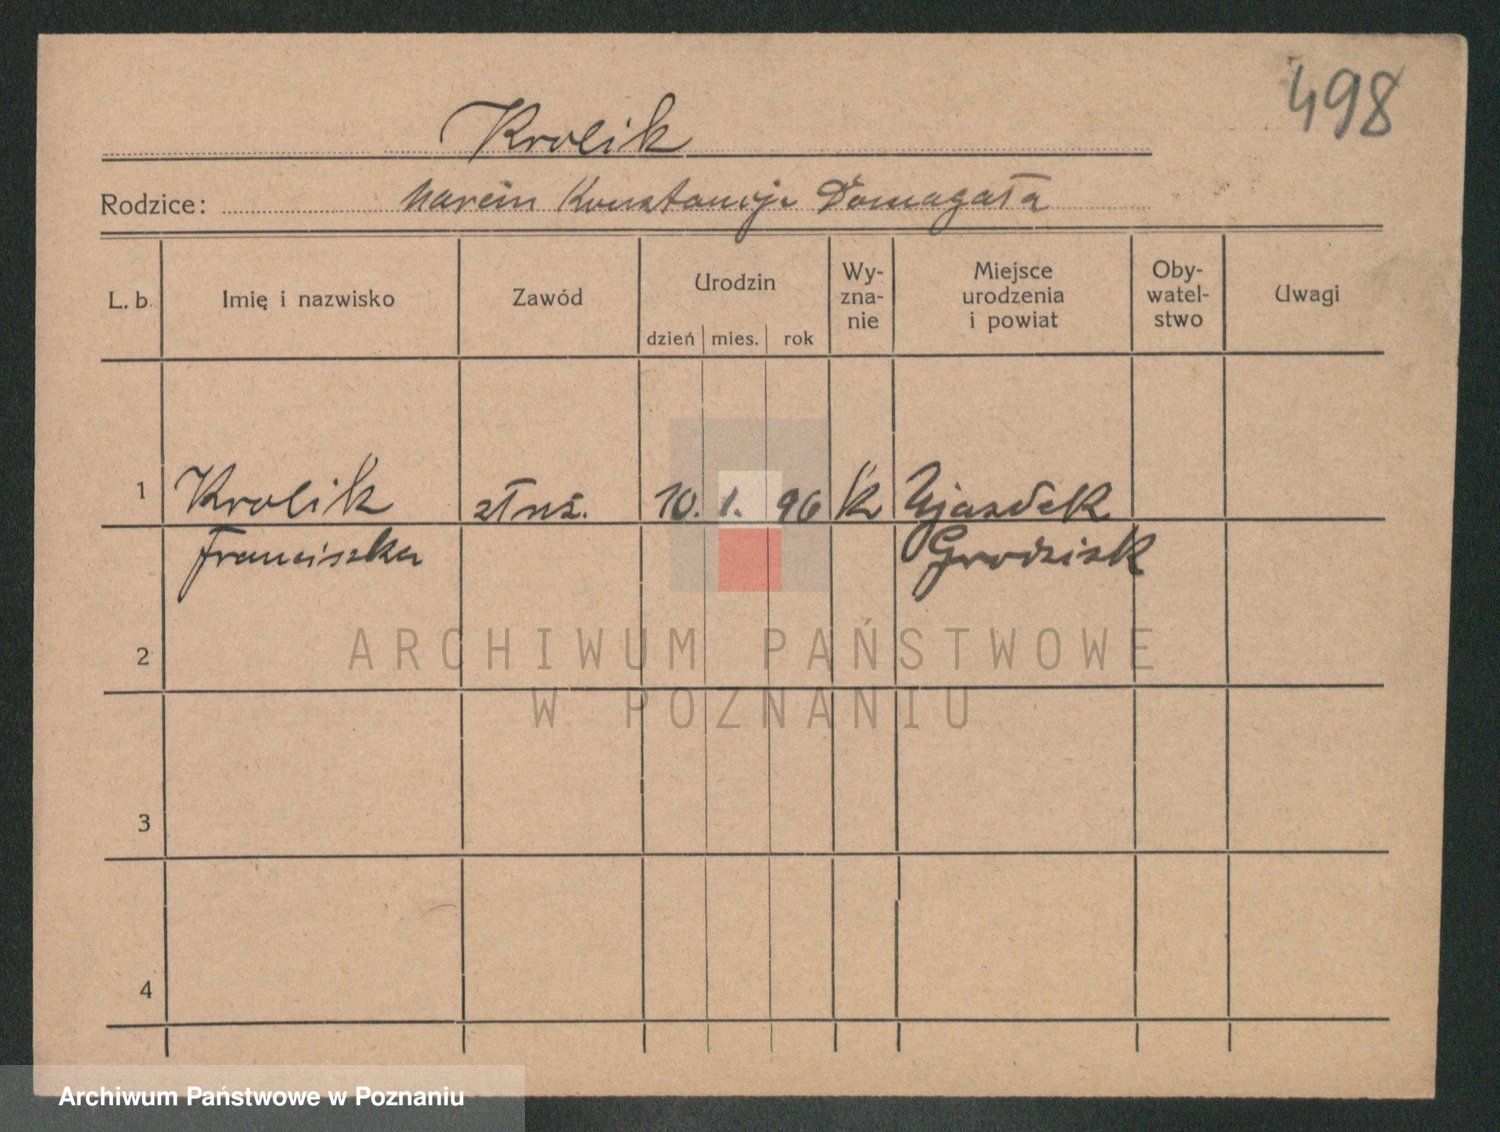 498
Krolik
Rodzice: Marcin Konstancja Domagała
L. b. Imię i nazwisko Zawód Urodzin dzień mies. rok Wy-zna-nie Miejsce urodzenia i powiat Oby-watel-stwo Uwagi
1 Krolik służ. 10. 1. 96 k Ujazdek
Franciszka Grodzisk
2
ARCHIWUM PAŃSTWOWE
W POZNANIU
3
4
Archiwum Państwowe w Poznaniu